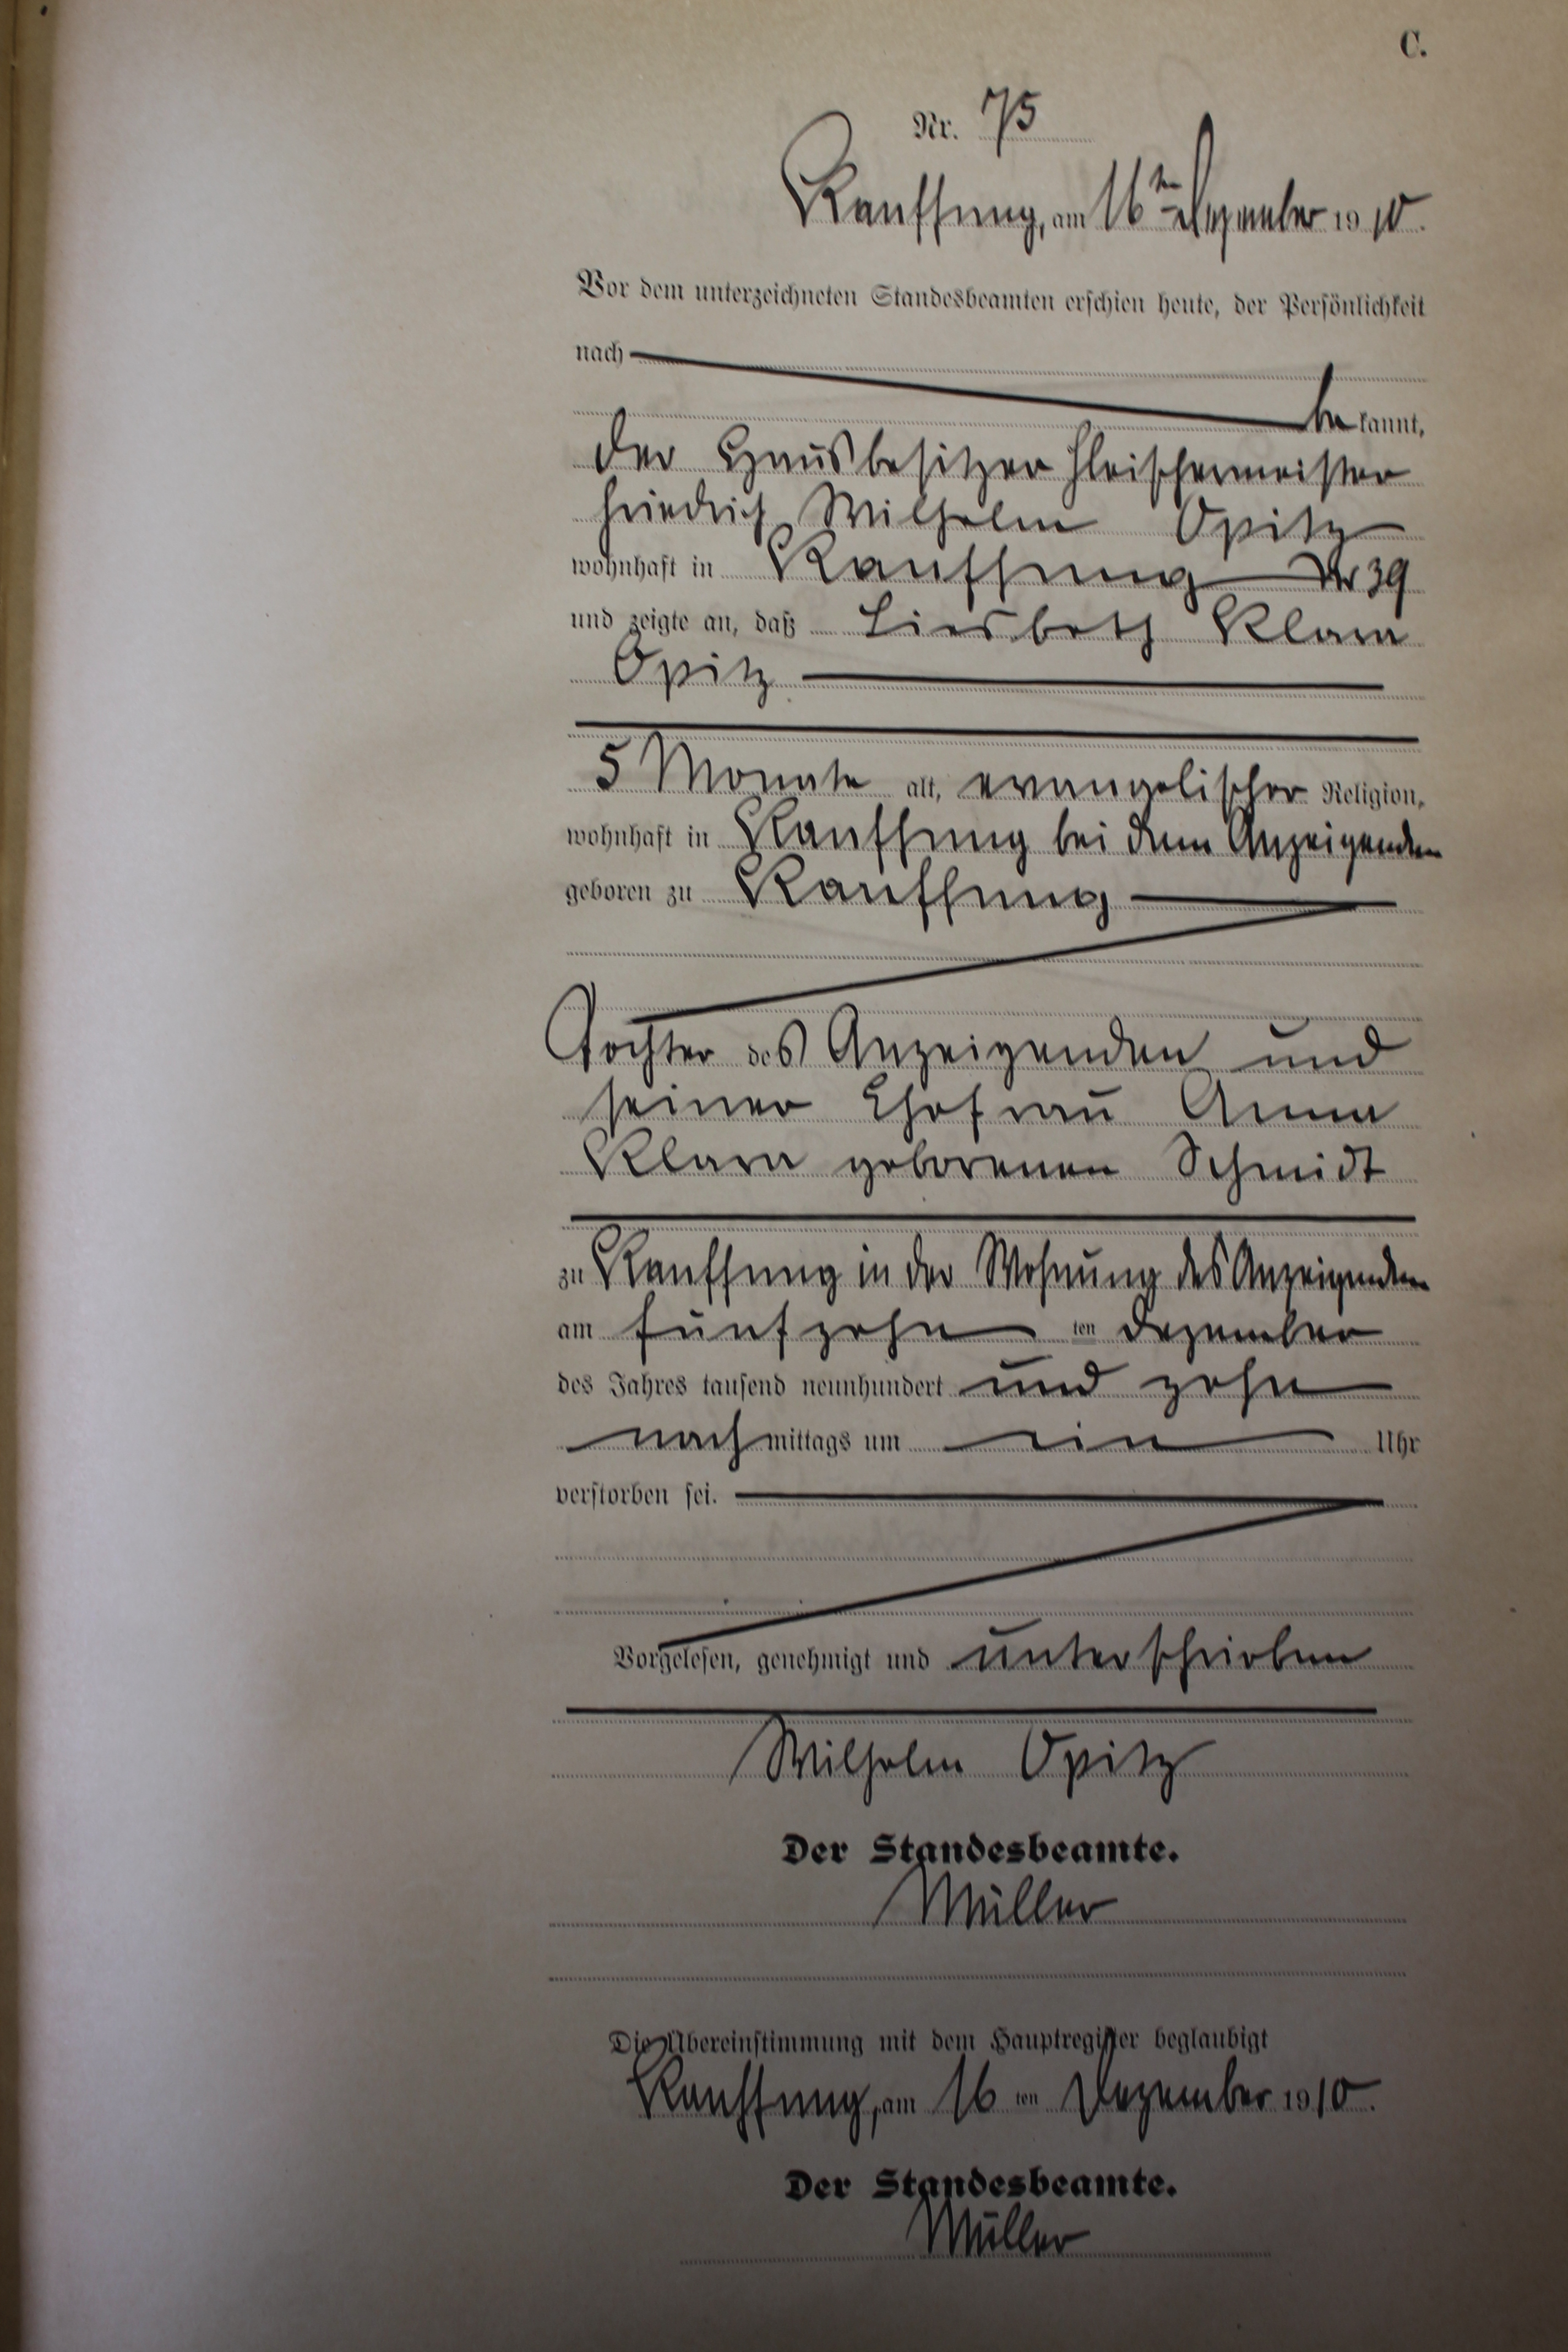 C.
Nr. 75
Kauffung, am 16ten Dezember 1910.
Vor dem unterzeichneten Standesbeamten erschien heute, der Persönlichkeit
nach
bekannt,
der Hausbesitzer Fleischermeister
Friedrich Wilhelm Opitz
wohnhaft in Kauffung Nr 39
und zeigte an, daß Liesbeth Klara
Opitz
5 Monate alt, evangelischer Religion,
wohnhaft in Kauffung bei dem Anzeigenden
geboren zu Kauffung
Tochter des Anzeigenden und
seiner Ehefrau Anna
Klara geborenen Schmidt
zu Kauffung in der Wohnung des Anzeigenden
am fünfzehnten Dezember
des Jahres tausend neunhundert und zehn
nachmittags um ein Uhr
verstorben sei.
Vorgelesen, genehmigt und unterschrieben
Wilhelm Opitz
Der Standesbeamte.
Müller
Die Übereinstimmung mit dem Hauptregister beglaubigt
Kauffung, am 16ten Dezember 1910.
Der Standesbeamte.
Müller